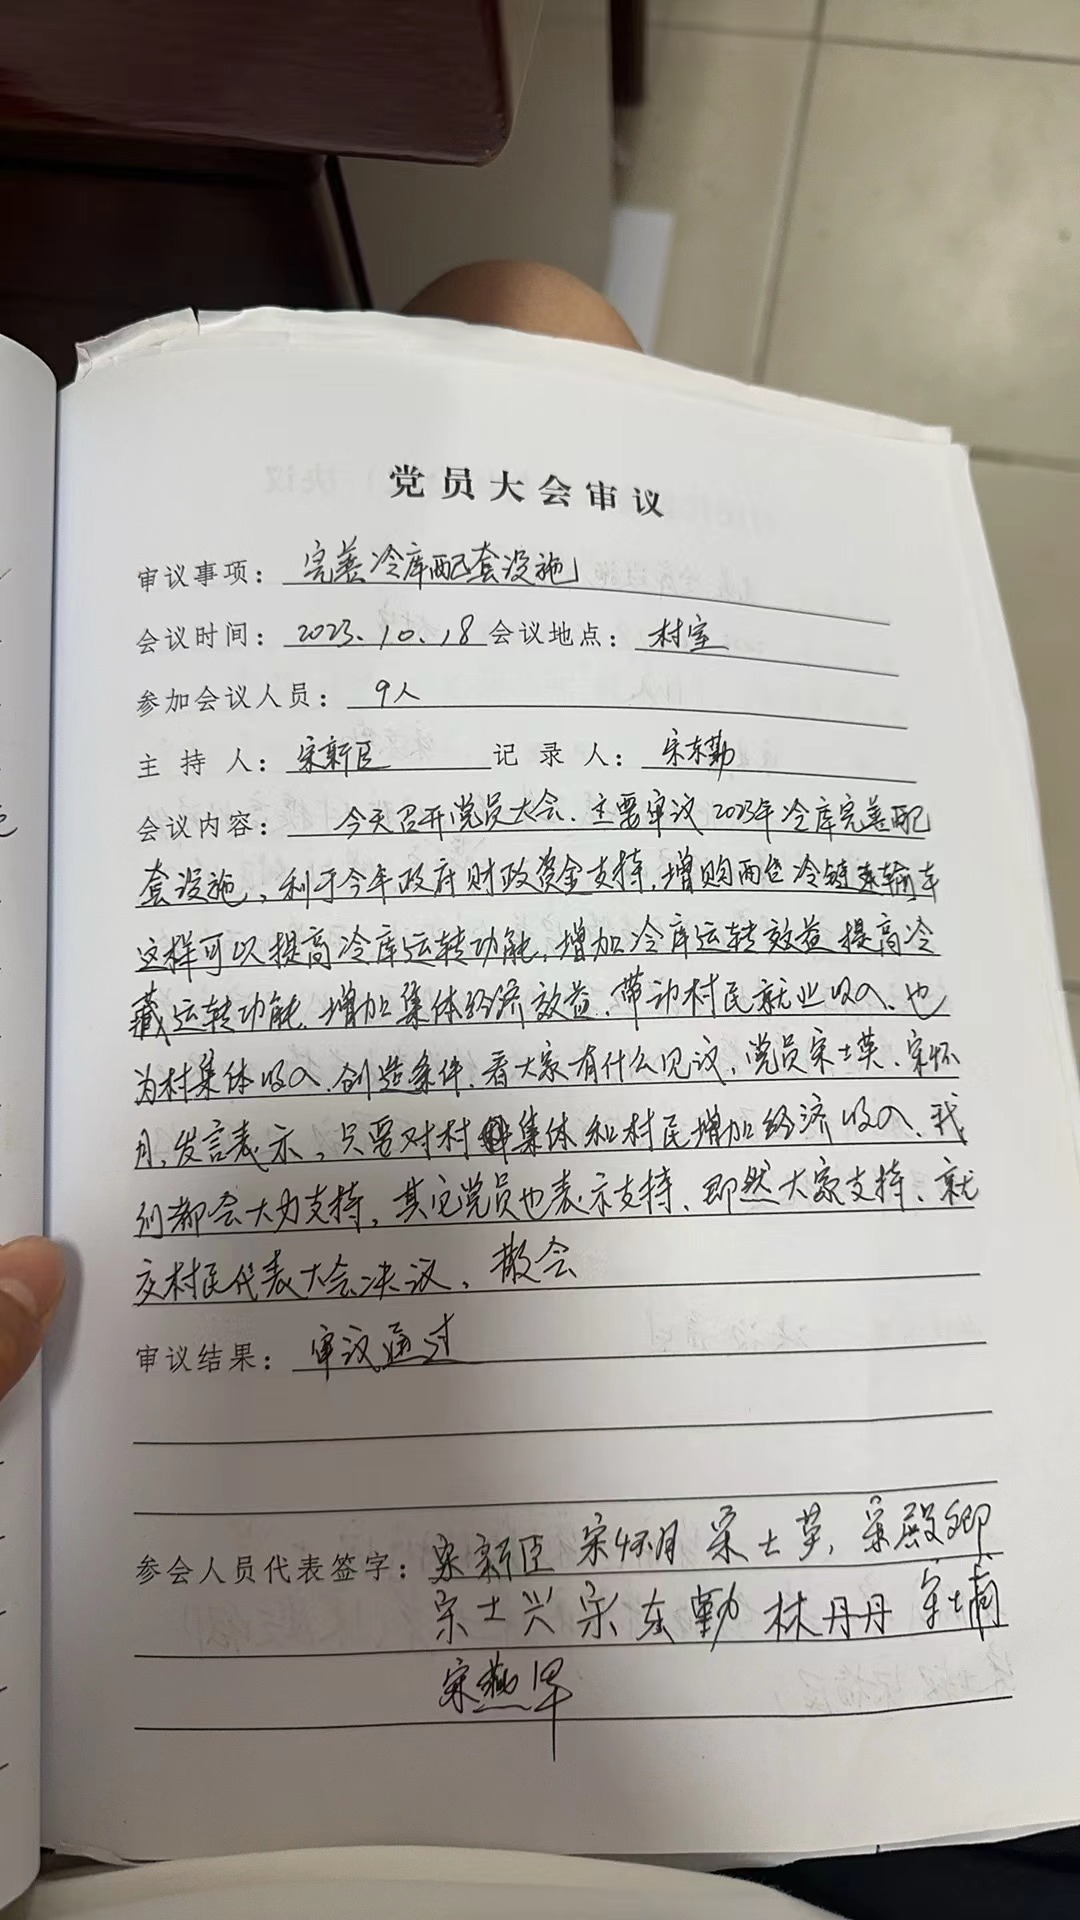 党员大会审议
审议事项：完善冷库配套设施
会议时间：2023.10.18 会议地点：村室
参加会议人员：9人
主持人：宋新臣 记录人：宋东勤
会议内容：今天召开党员大会、主要审议2023年冷库完善配
套设施，利于今年政府财政资金支持，增购两台冷链运输车
这样可以提高冷库运转功能，增加冷库运转效益提高冷
藏运转功能，增加集体经济效益、带动村民就业收入、也
为村集体收入、创造条件，看大家有什么见议，党员宋士英、宋怀
月，发言表示，只要对村集体和村民增加经济收入、我
们都会大力支持，其它党员也表示支持、即然大家支持、就
交村民代表大会决议，散会
审议结果：审议通过
参会人员代表签字：宋新臣 宋怀月 宋士英，宋殿卿
宋士兴 宋东勤 林丹丹 宋士
宋